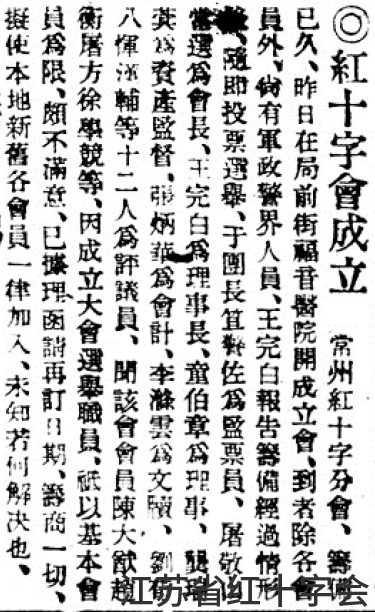 ◎紅十字會成立 常州紅十字分會、籌備
已久、昨日在局前街福音醫院開成立會、到者除各會
員外、尚有軍政警界人員、王完白報告籌備經過情形
、隨即投票選舉、于團長笪警佐爲監票員、屠敬
當選爲會長、王完白爲理事長、童伯章爲理事、
英爲資產監督、張炳華爲會計、李滌雲爲文牘、劉
八惲 輔等十二人爲評議員、聞該會會員陳大猷趙
衡屠方徐學競等、因成立大會選舉職員、祇以基本會
員爲限、頗不滿意、已據理函請再訂日期、籌商一切、
擬使本地新舊各會員一律加入、未知若何解決也、
江苏省红十字会